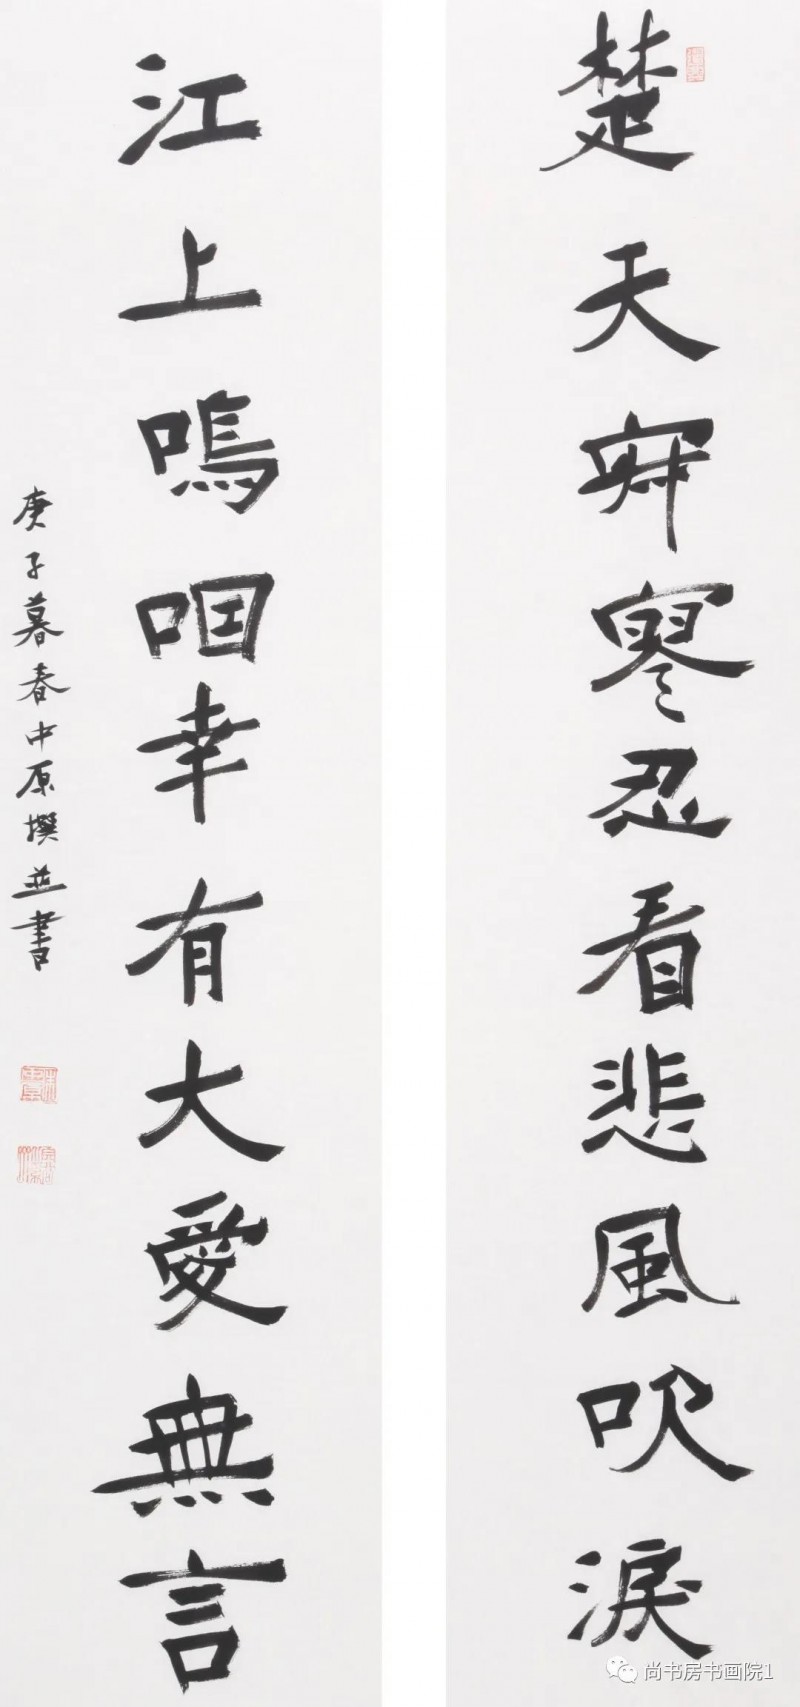 楚天寂寥忍看悲風吹淚
江上嗚咽幸有大愛無言
庚子暮春中原撰並書
尚书房书画院1